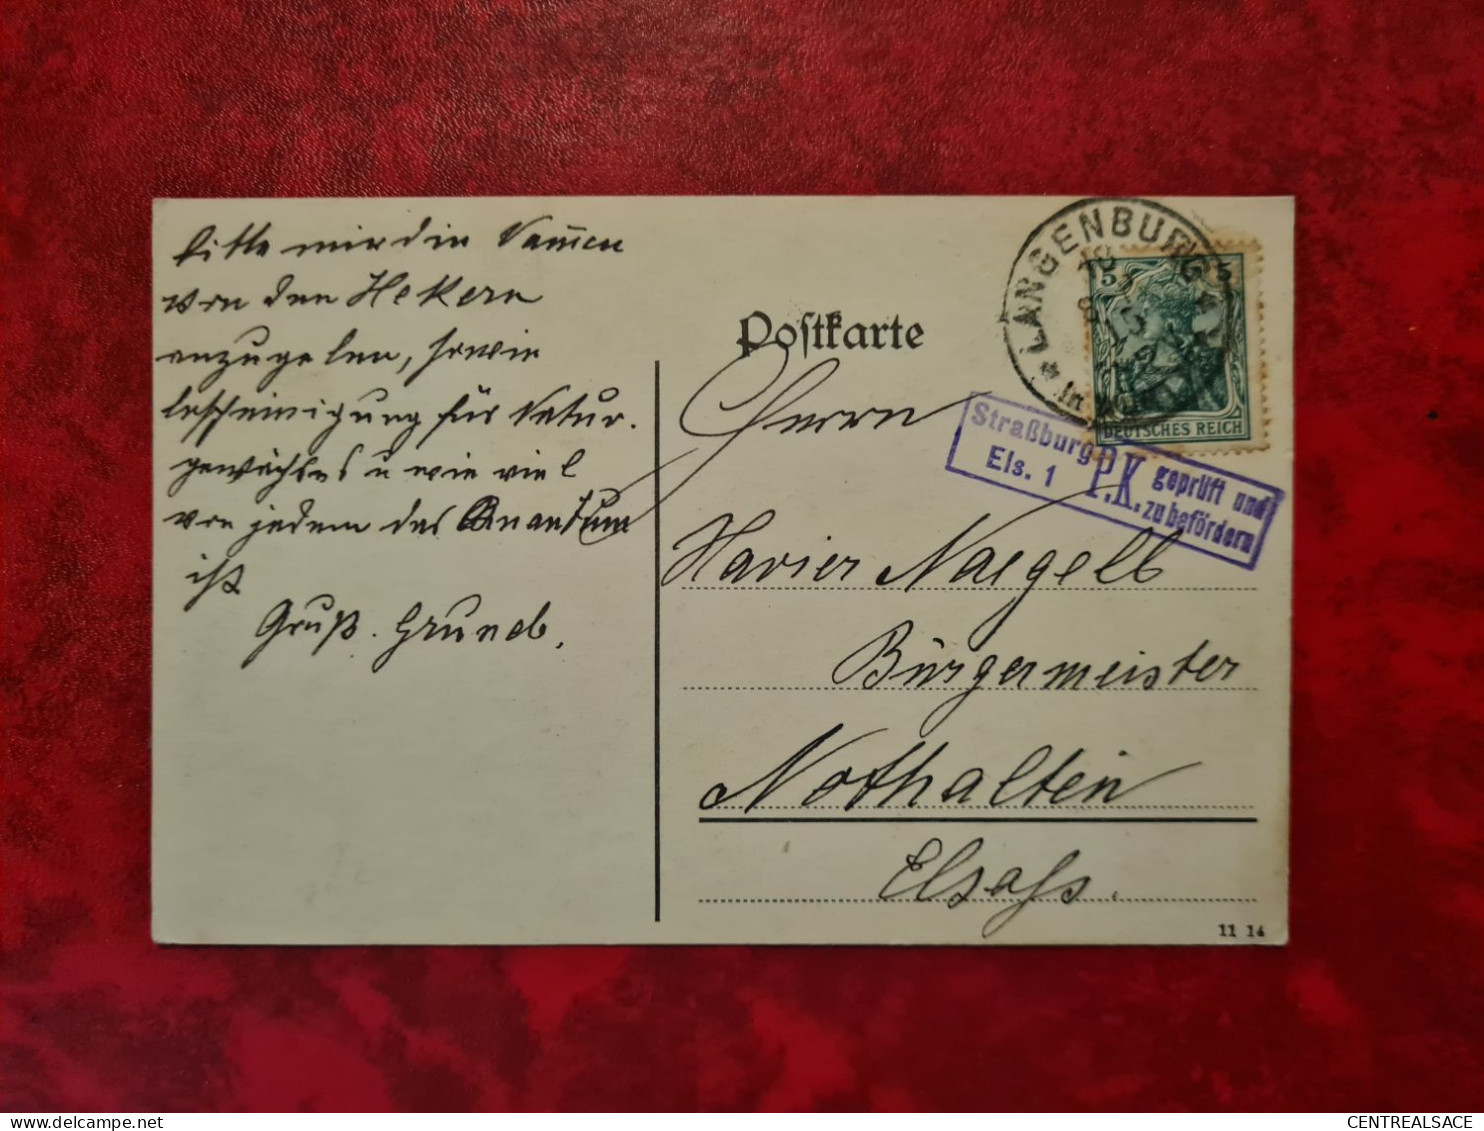 bitte mir die Namen
von den Hekern
anzugeben, sowie
bescheinigung für Natur.
gewächses u wie viel
von jedem das Quantum
ist
Gruß.
Postkarte
LANGENBURG
5 5
DEUTSCHES REICH
Straßburg
Els. 1
P.K. geprüft und
zu befördern
Herrn
Xavier Naegell
Bürgermeister
Nothalten
Elsass.
11 14
CENTREALSACE
delcampe.net